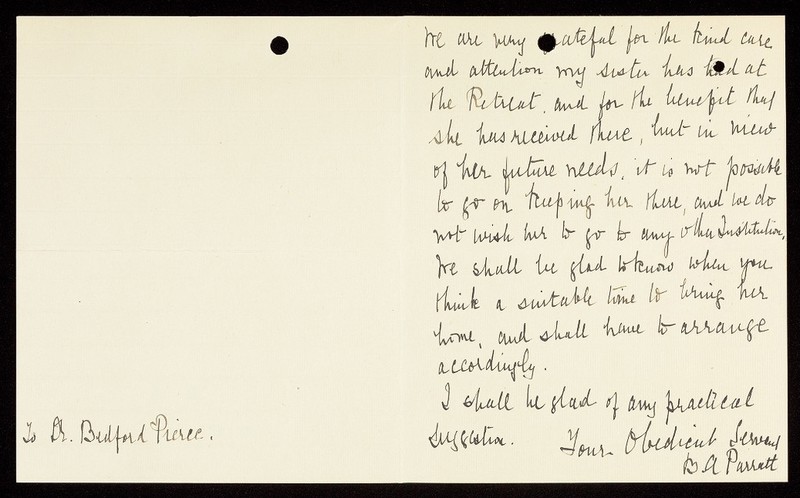 To Dr. Bedford Pierce.
We are very grateful for the kind care
and attention my sister has had at
the Retreat, and for the benefit that
she has received there, but in view
of her future needs, it is not possible
to go on keeping her there, and we do
not wish her to go to any other Institution.
We shall be glad to know when you
think a suitable time to bring her
home, and shall have to arrange
accordingly.
I shall be glad of any practical
suggestion. Your Obedient Servant
B A Parratt